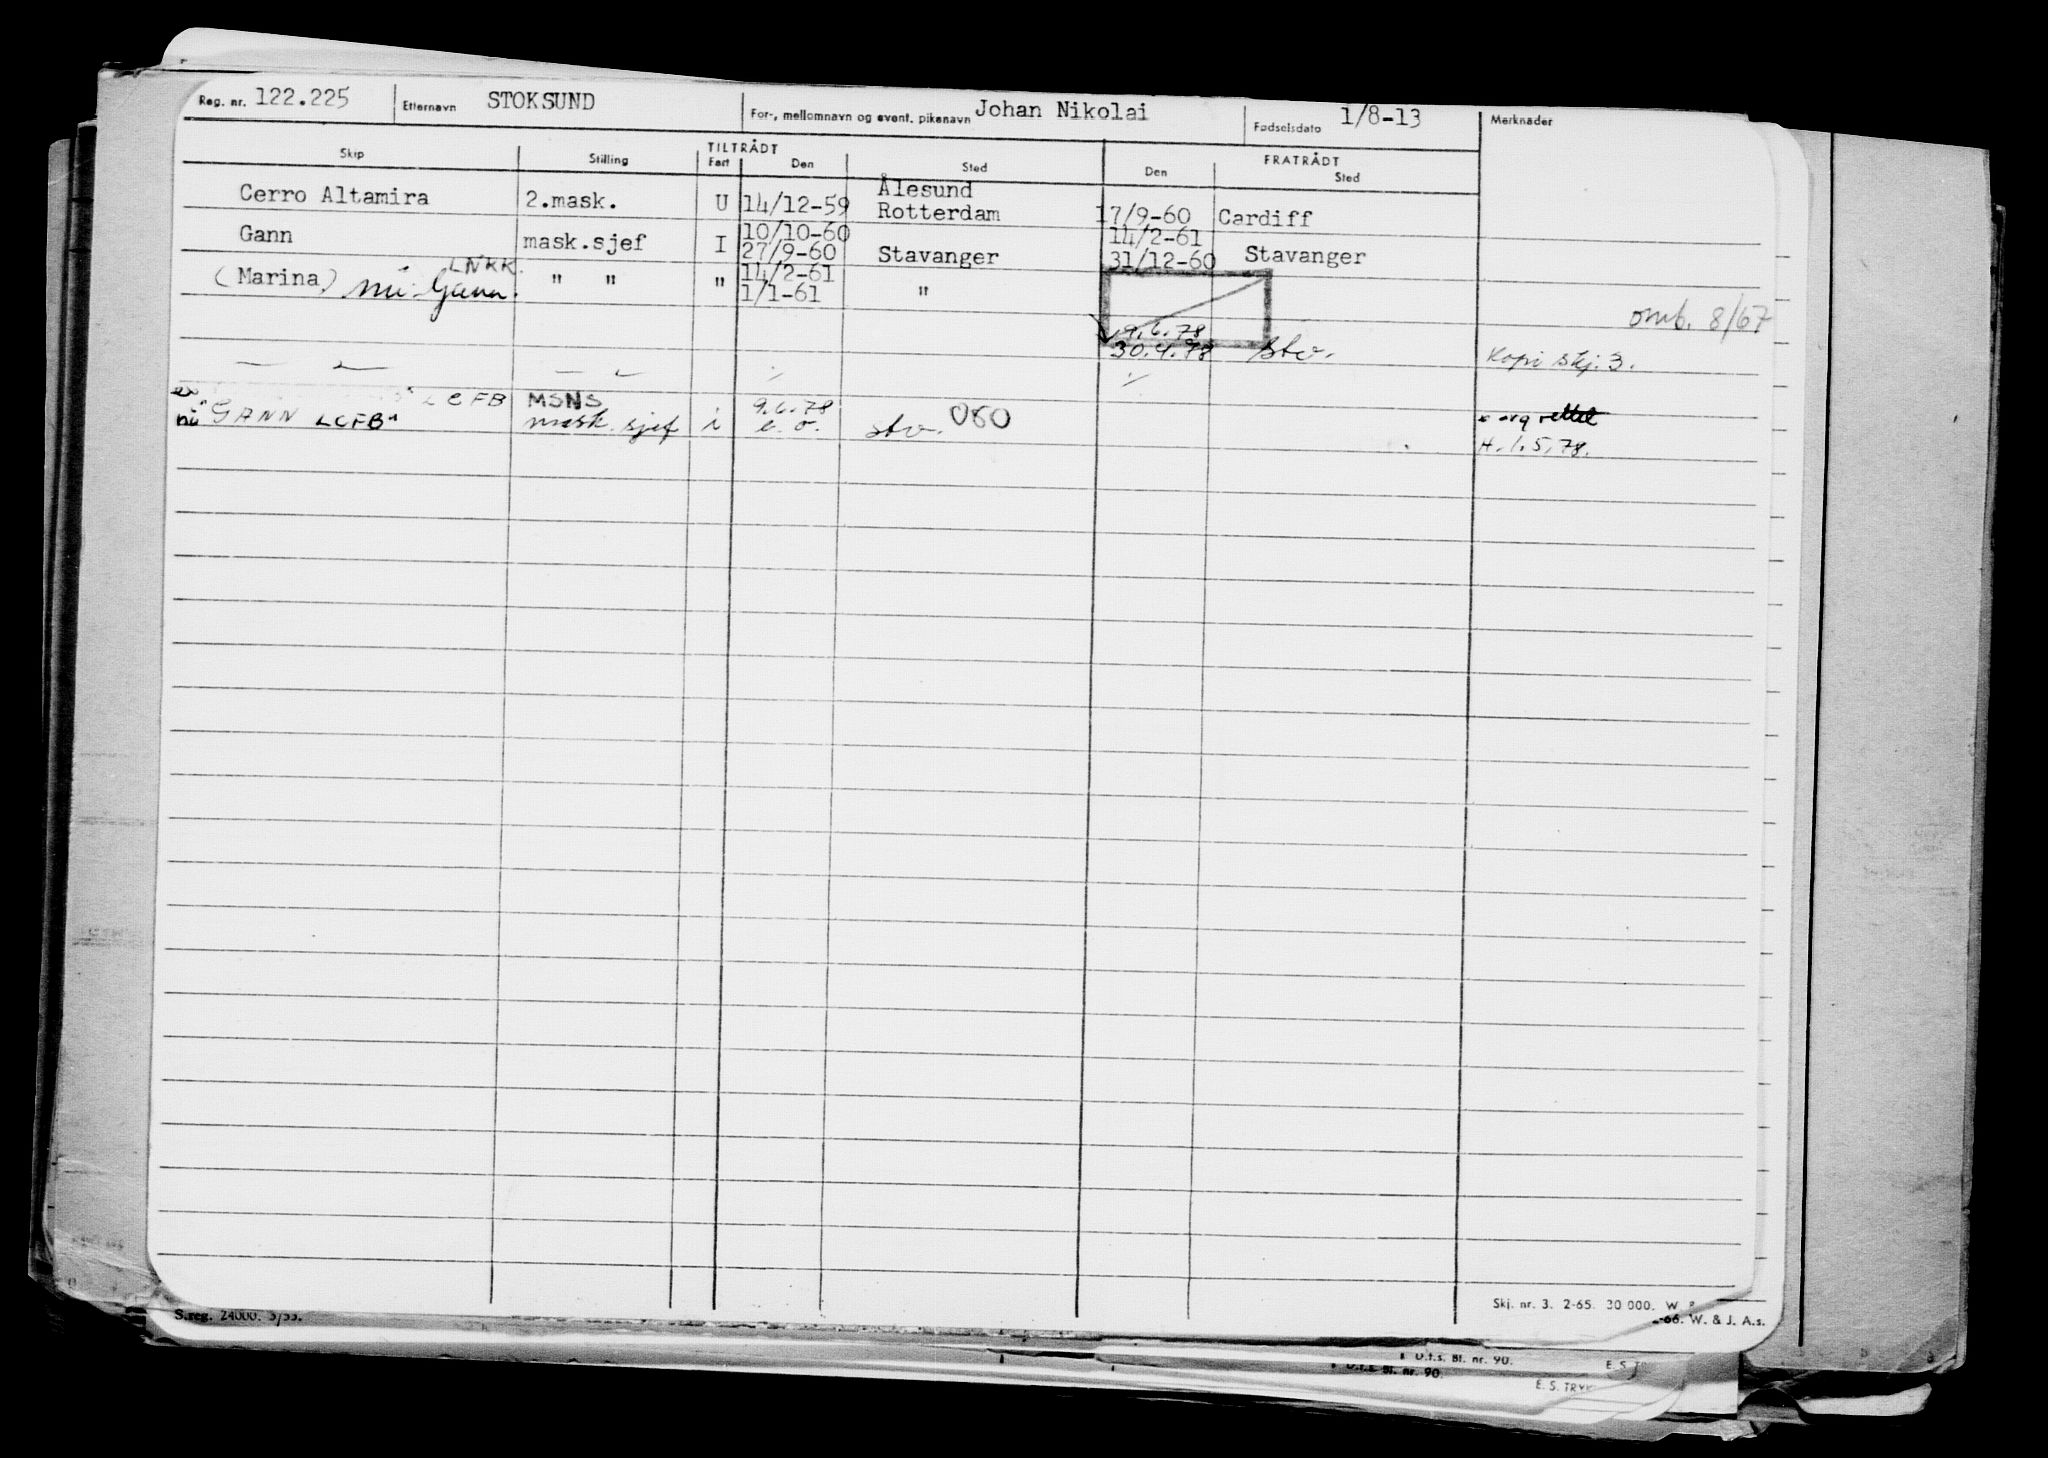 Reg. nr. 122.225 Etternavn STOKSUND For-, mellomnavn og event. pikenavn Johan Nikolai Fødselsdato 1/8-13 Merknader
TILTRÅDT FRATRÅDT
Skip Stilling Fart Den Sted Den Sted
Ålesund
Cerro Altamira 2.mask. U 14/12-59 Rotterdam 17/9-60 Cardiff
10/10-60 14/2-61
Gann mask.sjef I 27/9-60 Stavanger 31/12-60 Stavanger
LNKK. 14/2-61
(Marina) nu Gann. " " " 1/1-61 "
omb. 8/67
9.6.78
30.4.78 Stv. Kopi Skj. 3.
ex LCFB MSNS 9.6.78
nu "GANN LCFB" mask. sjef i e.o. stv. 080 org rettet
H. 1.5.78.
Skj. nr. 3. 2-65. 30 000. W
S.reg. 24000. 3/53. -66. W. & J. A.s.
O.t.s. Bl. nr. 90. E. S. T
O.t.s. Bl. nr. 90. E. S. TRYK